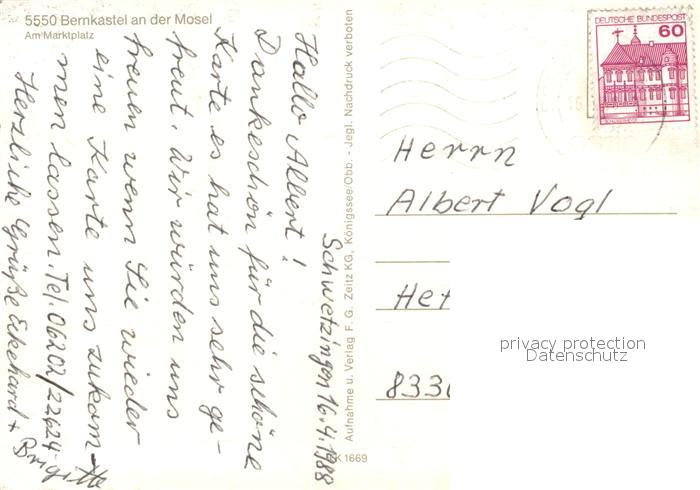 5550 Bernkastel an der Mosel
Am Marktplatz
Schwetzingen 16.4.1988
Hallo Albert!
Dankeschön für die schöne
Karte es hat uns sehr ge-
freut. Wir würden uns
freuen wenn Sie wieder
eine Karte uns zukom-
men lassen. Tel. 06202/22624
Herzliche Grüße Ekehard + Brigitte
Aufnahme u. Verlag F. G. Zeitz KG, Königssee/Obb. - Jegl. Nachdruck verboten
K 1669
DEUTSCHE BUNDESPOST
60
Herrn
Albert Vogl
Het
833
privacy protection
Datenschutz